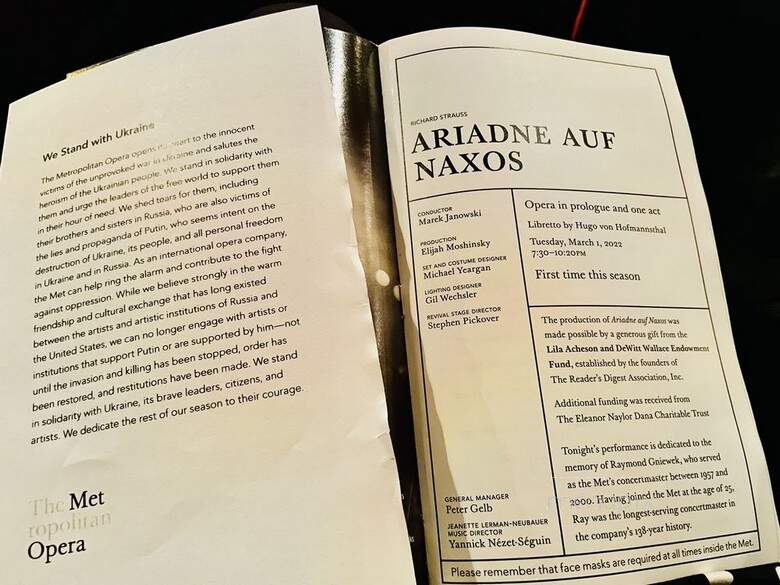 We Stand with Ukraine
The Metropolitan Opera opens its heart to the innocent
victims of the unprovoked war in Ukraine and salutes the
heroism of the Ukrainian people. We stand in solidarity with
them and urge the leaders of the free world to support them
in their hour of need. We shed tears for them, including
their brothers and sisters in Russia, who are also victims of
the lies and propaganda of Putin, who seems intent on the
destruction of Ukraine, its people, and all personal freedom
in Ukraine and in Russia. As an international opera company,
the Met can help ring the alarm and contribute to the fight
against oppression. While we believe strongly in the warm
friendship and cultural exchange that has long existed
between the artists and artistic institutions of Russia and
the United States, we can no longer engage with artists or
institutions that support Putin or are supported by him—not
until the invasion and killing has been stopped, order has
been restored, and restitutions have been made. We stand
in solidarity with Ukraine, its brave leaders, citizens, and
artists. We dedicate the rest of our season to their courage.
The Met
ropolitan
Opera
RICHARD STRAUSS
ARIADNE AUF
NAXOS
CONDUCTOR
Marek Janowski
PRODUCTION
Elijah Moshinsky
SET AND COSTUME DESIGNER
Michael Yeargan
LIGHTING DESIGNER
Gil Wechsler
REVIVAL STAGE DIRECTOR
Stephen Pickover
GENERAL MANAGER
Peter Gelb
JEANETTE LERMAN-NEUBAUER
MUSIC DIRECTOR
Yannick Nézet-Séguin
Opera in prologue and one act
Libretto by Hugo von Hofmannsthal
Tuesday, March 1, 2022
7:30–10:20PM
First time this season
The production of Ariadne auf Naxos was
made possible by a generous gift from the
Lila Acheson and DeWitt Wallace Endowment
Fund, established by the founders of
The Reader's Digest Association, Inc.
Additional funding was received from
The Eleanor Naylor Dana Charitable Trust
Tonight's performance is dedicated to the
memory of Raymond Gniewek, who served
as the Met's concertmaster between 1957 and
2000. Having joined the Met at the age of 25,
Ray was the longest-serving concertmaster in
the company's 138-year history.
Please remember that face masks are required at all times inside the Met.